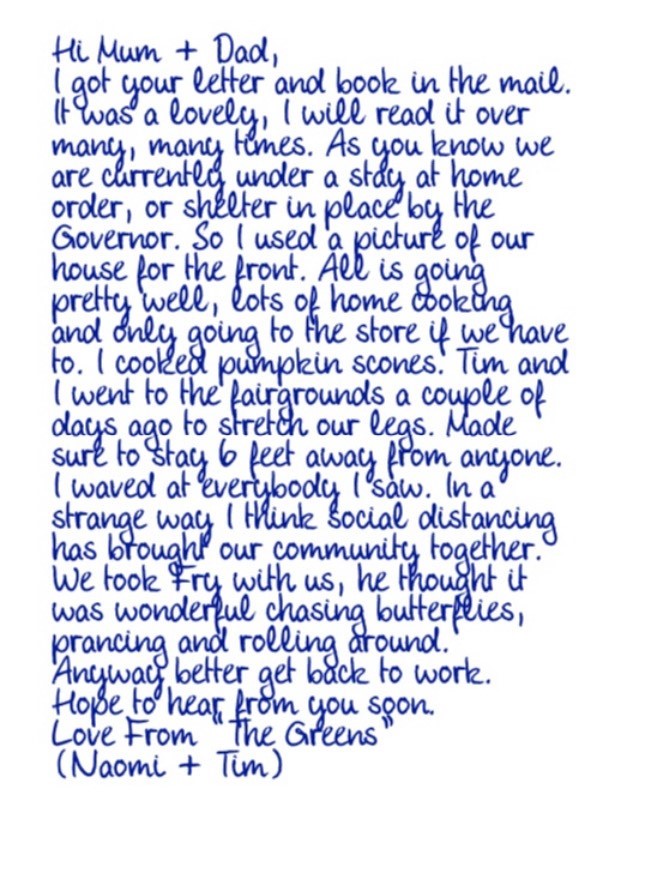 Hi Mum + Dad,
I got your letter and book in the mail.
It was a lovely, I will read it over
many, many times. As you know we
are currently under a stay at home
order, or shelter in place by the
Governor. So I used a picture of our
house for the front. All is going
pretty well, lots of home cooking
and only going to the store if we have
to. I cooked pumpkin scones. Tim and
I went to the fairgrounds a couple of
days ago to stretch our legs. Made
sure to stay 6 feet away from anyone.
I waved at everybody I saw. In a
strange way I think social distancing
has brought our community together.
We took Fry with us, he thought it
was wonderful chasing butterflies,
prancing and rolling around.
Anyway better get back to work.
Hope to hear from you soon.
Love From "The Greens"
(Naomi + Tim)